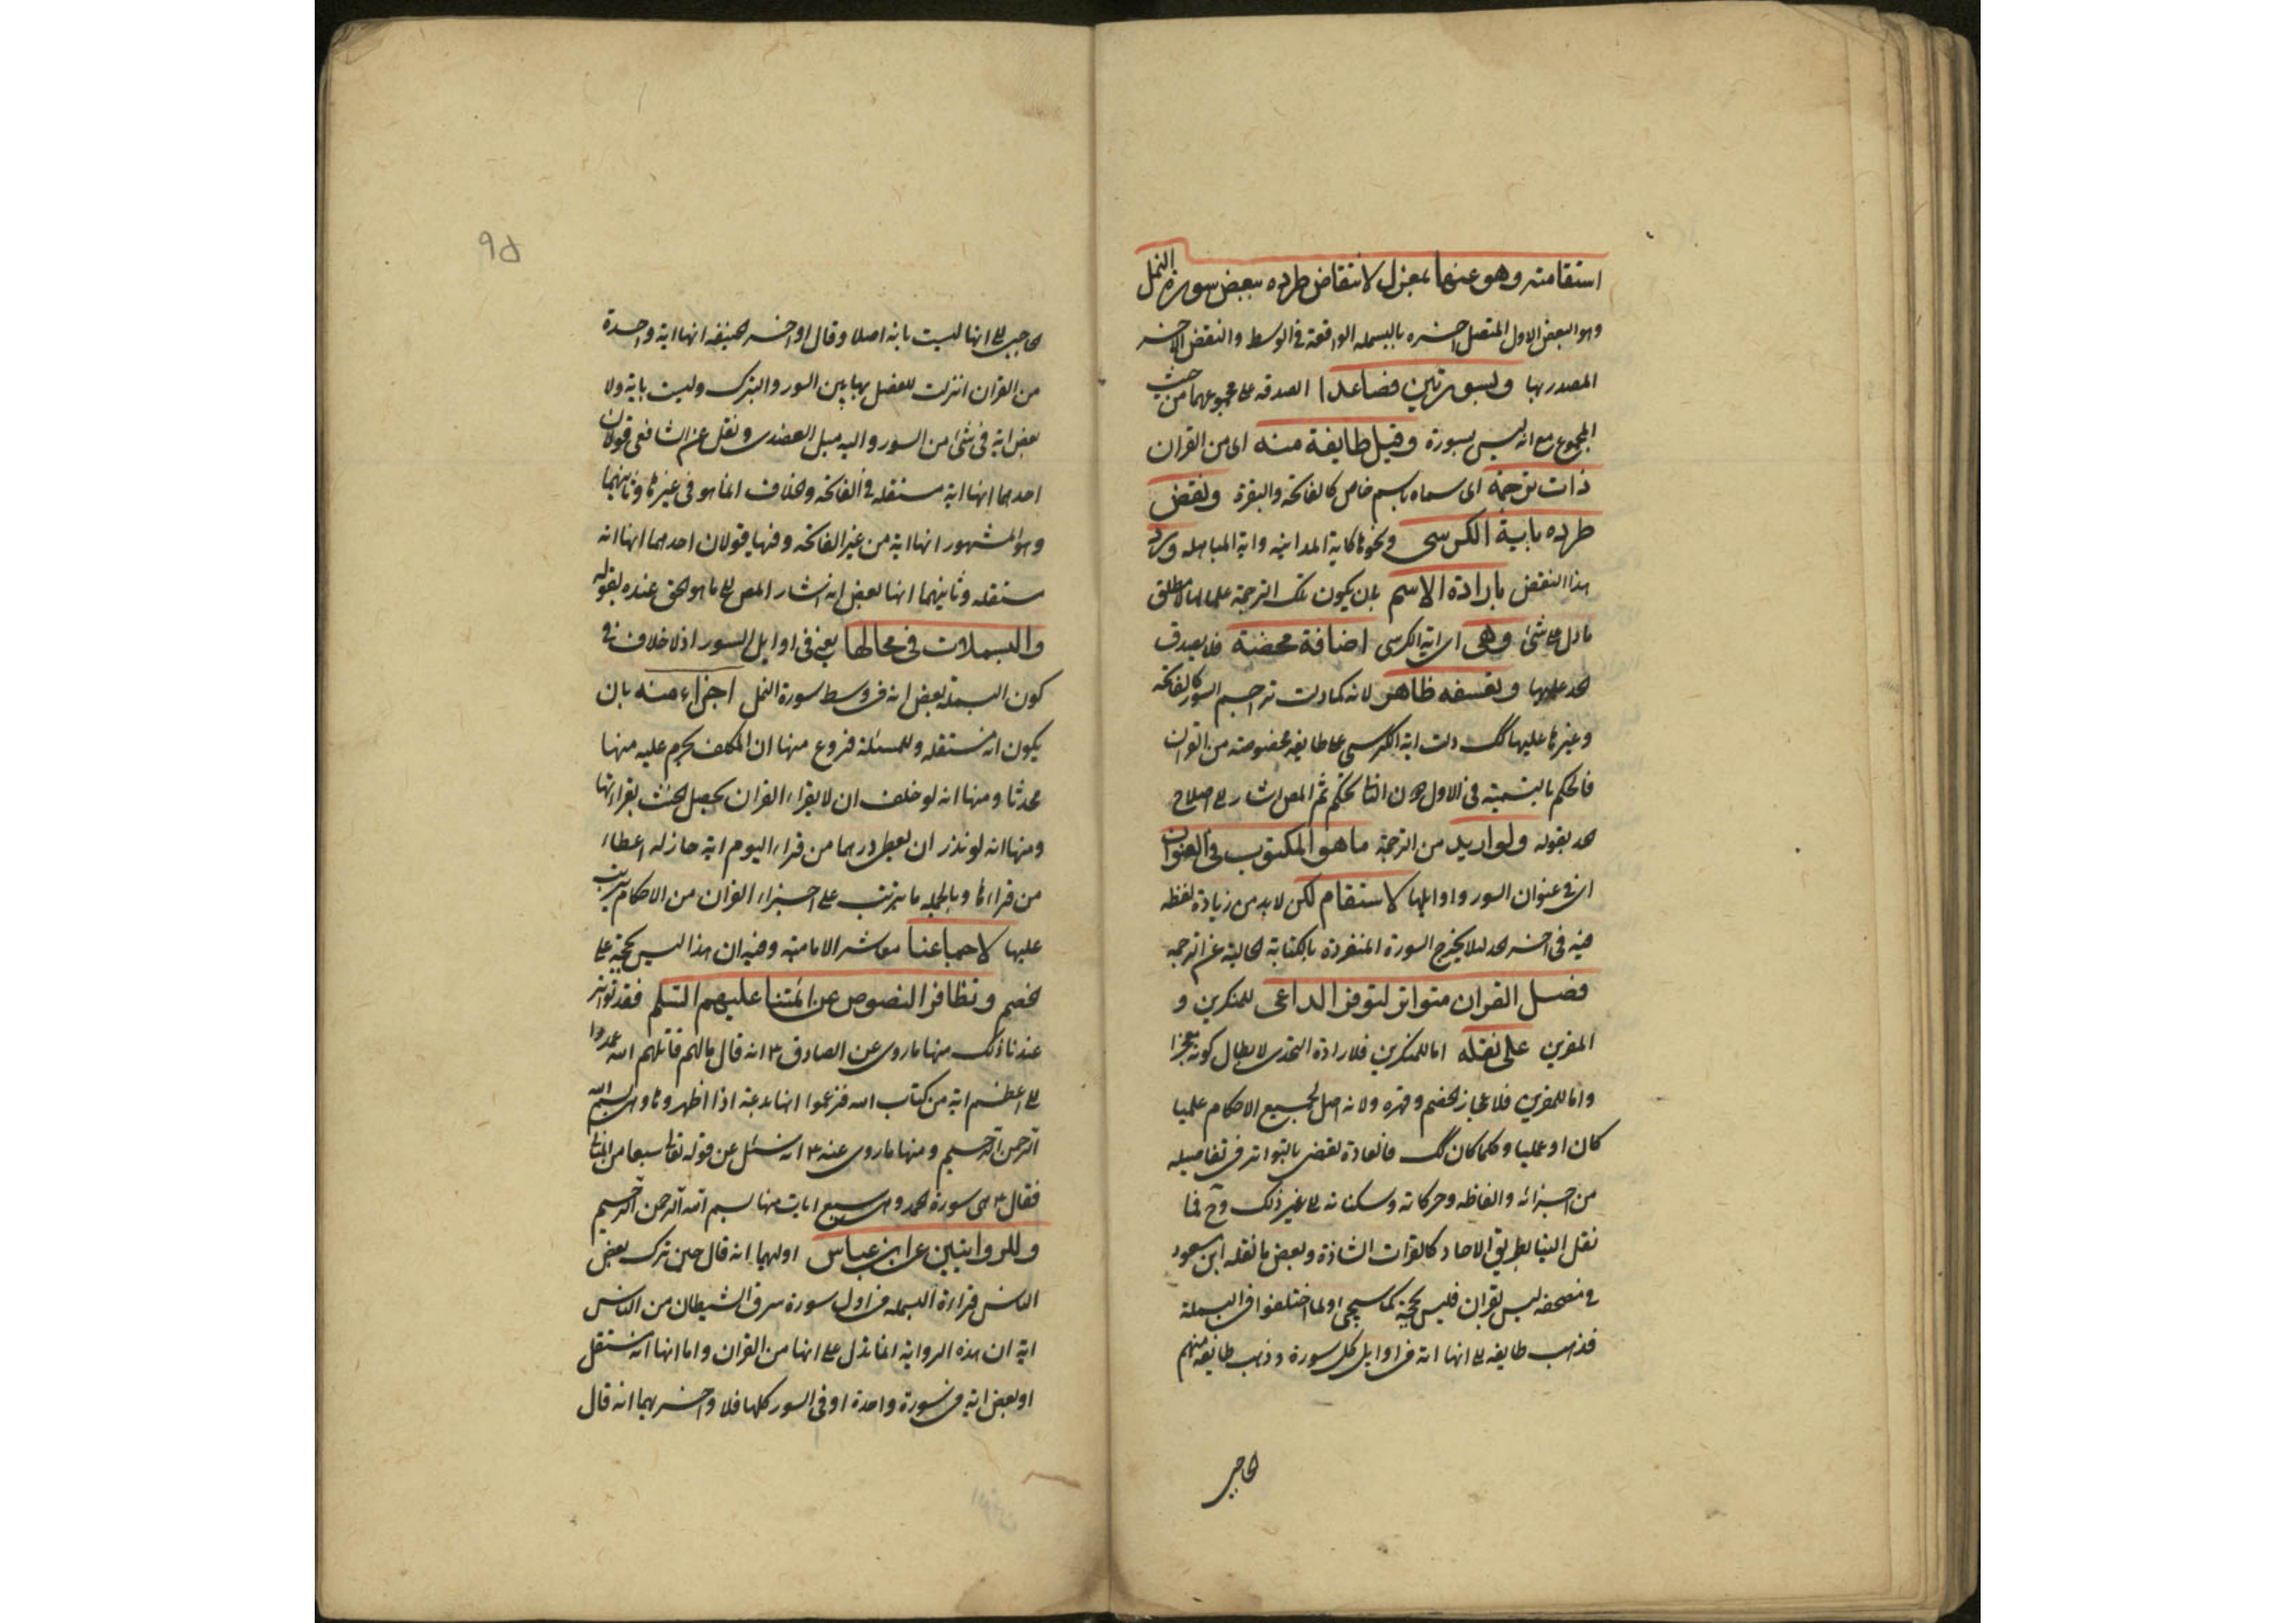 استقامته وهو عنهما بمعزل لانتقاض طرده ببعض سورة النمل
وهو البعض الاول المتصل اخره بالبسملة الواقعة في الوسط والنقض الاخر
المصدر بها وبسورتين فصاعدا لصدقه على مجموعهما من حيث
المجموع مع انه ليس بسورة وقيل طايفة منه اى من القران
ذات ترجمة اى مسماه باسم خاص كالفاتحة والبقرة ونقض
طرده باية الكرسى ونحوها كاية المداينه واية المباهله ورد
هذا النقض بارادة الاسم بان يكون تلك الترجمة علما لها لا مطلق
ما دل على شئ وهى اى اية الكرسى اضافة محضة فلا يصدق
الحد عليها وتعسفه ظاهر لانه كما دلت تراجيم السور كالفاتحه
وغيرها عليها كك دلت اية الكرسى على طايفه مخصوصة من القران
فالحكم بالتسمية فى الاول دون الثانى تحكم ثم المص اشار الى اصلاح
الحد بقوله ولو اريد من الترجمة ما هو المكتوب فى العنوان
اى فى عنوان السور واوايلها لاستقام لكن لابد من زيادة لفظه
فيه فى اخر الحد لئلا يخرج السورة المنفردة بالكتابة الخالية عن الترجمه
فصل القران متواتر لتوفر الداعى للمنكرين و
المقرين على نقله اما للمنكرين فلارادة التحدى لابطال كونه معجزا
واما للمقرين فلاعجاز الخصم وقهره ولانه اصل لجميع الاحكام علميا
كان او عمليا وكلما كان كك فالعادة تقضى بالتواتر فى تفاصيله
من اجزائه والفاظه وحركاته وسكناته الى غير ذلك وح فما
نقل الينا بطريق الاحاد كالقرات الشاذة وبعض ما نقله ابن مسعود
فى مصحفه ليس بقران فليس بحجة كما سيجى ولما اختلفوا فى البسملة
فذهب طايفه الى انها اية فى اوايل كل سورة وذهب طايفه منهم
الحاجبى
٩٥
الحاجبى الى انها ليست باية اصلا وقال اواخر الحنيفه انها اية واحدة
من القران انزلت للفصل بها بين السور والتبرك وليست باية ولا
بعض اية فى شئ من السور واليه ميل العضدى ونقل عن الشافعى قولان
احدهما انها اية مستقله فى الفاتحه والخلاف انما هو فى غيرها وثانيهما
وهو المشهور انها اية من غير الفاتحه وفيها قولان احدهما انها اية
مستقله وثانيهما انها بعض اية اشار المص الى ما هو الحق عنده بقوله
والبسملات فى محالها يعنى فى اوايل السور اذ لا خلاف فى
كون البسملة بعض اية فى وسط سورة النمل اجزاء منه بان
يكون اية مستقله وللمسئلة فروع منها ان المكلف يحرم عليه مسها
محدثا ومنها انه لو حلف ان لا يقراء القران يحصل الحنث بقراءتها
ومنها انه لو نذر ان يعطى درهما من قراء اليوم اية جاز له اعطاء
من قراءها وبالجمله ما يترتب على اجزاء القران من الاحكام يترتب
عليها لاجماعنا معاشر الامامية وفيه ان هذا ليس بحجة على
الخصم وتظافر النصوص عن ائمتنا عليهم السلم فقد تواتر
عندنا ذلك منها ما روى عن الصادق ع انه قال ما لهم قاتلهم الله عمدوا
الى اعظم اية من كتاب الله فزعموا انها بدعة اذا اظهروها وهى بسم الله
الرحمن الرحيم ومنها ما روى عنه ع انه سئل عن قوله تعالى سبعا من المثانى
فقال ع هى سورة الحمد وهى سبع ايات منها بسم الله الرحمن الرحيم
وللروايتين عن ابن عباس اوليهما انه قال حين ترك بعض
الناس قراءة البسمله فى اول سورة سرق الشيطان من الناس
اية ان هذه الرواية انما تدل على انها من القران واما انها اية مستقل
او بعض اية فى سورة واحدة او فى السور كلها فلا واخريهما انه قال